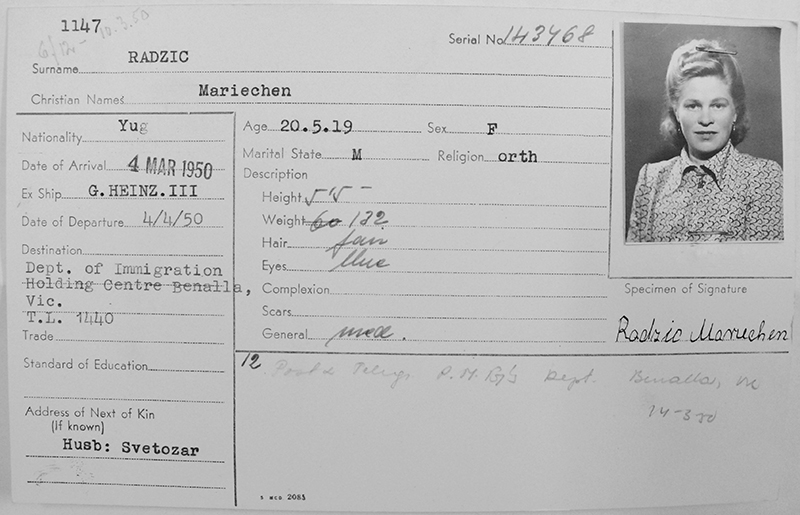 1147
6/12- 10.3.50
Serial No. 143468
Surname RADZIC
Christian Names Mariechen
Nationality Yug
Date of Arrival 4 MAR 1950
Ex Ship G.HEINZ.III
Date of Departure 4/4/50
Destination
Dept. of Immigration
Holding Centre Benalla,
Vic.
T.L. 1440
Trade
Standard of Education
Address of Next of Kin
(If known)
Husb: Svetozar
Age 20.5.19 Sex F
Marital State M Religion orth
Description
Height 5'5"
Weight 60 132
Hair fair
Eyes blue
Complexion
Scars
General med.
Specimen of Signature
Radzic Mariechen
12 Post & Telegs P.M.G's Dept. Benalla, Vic
14-3-50
S MCD 2083